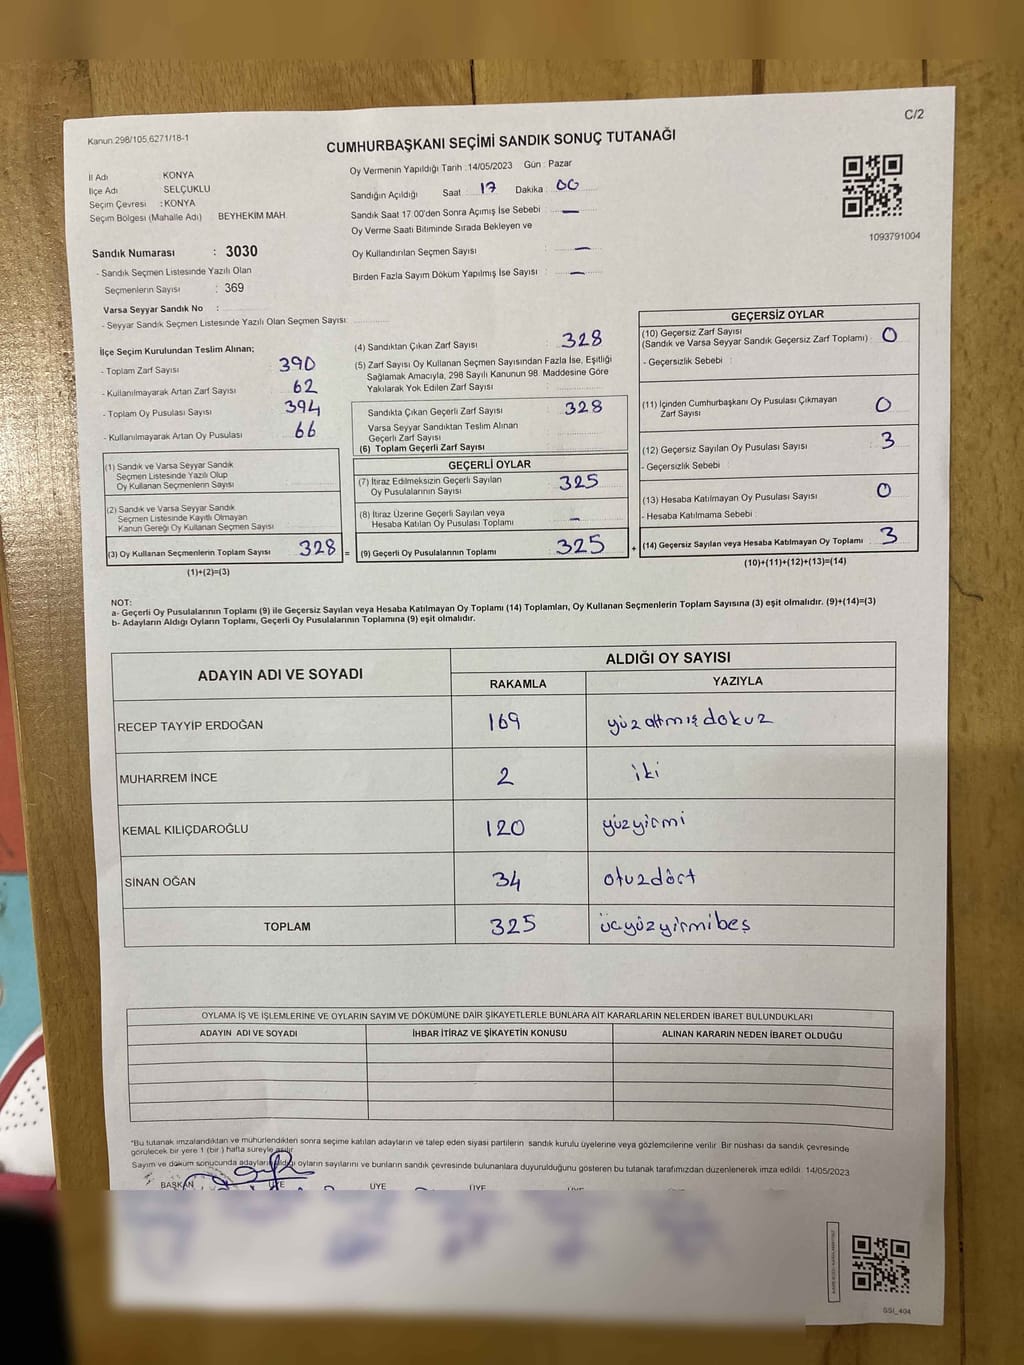 C/2
Kanun.298/105,6271/18-1
CUMHURBAŞKANI SEÇİMİ SANDIK SONUÇ TUTANAĞI
İl Adı : KONYA
İlçe Adı SELÇUKLU
Seçim Çevresi : KONYA
Seçim Bölgesi (Mahalle Adı) BEYHEKİM MAH.
Oy Vermenin Yapıldığı Tarih : 14/05/2023 Gün : Pazar
Sandığın Açıldığı Saat 17 Dakika : 00
Sandık Saat 17.00'den Sonra Açımış İse Sebebi : —
Oy Verme Saati Bitiminde Sırada Bekleyen ve
Oy Kullandırılan Seçmen Sayısı : —
Birden Fazla Sayım Döküm Yapılmış İse Sayısı : —
1093791004
Sandık Numarası : 3030
- Sandık Seçmen Listesinde Yazılı Olan
Seçmenlerin Sayısı : 369
Varsa Seyyar Sandık No :
- Seyyar Sandık Seçmen Listesinde Yazılı Olan Seçmen Sayısı:
İlçe Seçim Kurulundan Teslim Alınan;
- Toplam Zarf Sayısı : 390
- Kullanılmayarak Artan Zarf Sayısı : 62
- Toplam Oy Pusulası Sayısı : 394
- Kullanılmayarak Artan Oy Pusulası : 66
(1) Sandık ve Varsa Seyyar Sandık
Seçmen Listesinde Yazılı Olup
Oy Kullanan Seçmenlerin Sayısı
(2) Sandık ve Varsa Seyyar Sandık
Seçmen Listesinde Kayıtlı Olmayan
Kanun Gereği Oy Kullanan Seçmen Sayısı
(3) Oy Kullanan Seçmenlerin Toplam Sayısı 328 =
(1)+(2)=(3)
(4) Sandıktan Çıkan Zarf Sayısı : 328
(5) Zarf Sayısı Oy Kullanan Seçmen Sayısından Fazla İse, Eşitliği
Sağlamak Amacıyla, 298 Sayılı Kanunun 98. Maddesine Göre
Yakılarak Yok Edilen Zarf Sayısı
Sandıkta Çıkan Geçerli Zarf Sayısı : 328
Varsa Seyyar Sandıktan Teslim Alınan
Geçerli Zarf Sayısı
(6) Toplam Geçerli Zarf Sayısı
GEÇERLİ OYLAR
(7) İtiraz Edilmeksizin Geçerli Sayılan
Oy Pusulalarının Sayısı : 325
(8) İtiraz Üzerine Geçerli Sayılan veya
Hesaba Katılan Oy Pusulası Toplamı : —
(9) Geçerli Oy Pusulalarının Toplamı : 325 +
GEÇERSİZ OYLAR
(10) Geçersiz Zarf Sayısı
(Sandık ve Varsa Seyyar Sandık Geçersiz Zarf Toplamı) : 0
- Geçersizlik Sebebi :
(11) İçinden Cumhurbaşkanı Oy Pusulası Çıkmayan
Zarf Sayısı : 0
(12) Geçersiz Sayılan Oy Pusulası Sayısı : 3
- Geçersizlik Sebebi :
(13) Hesaba Katılmayan Oy Pusulası Sayısı : 0
- Hesaba Katılmama Sebebi :
(14) Geçersiz Sayılan veya Hesaba Katılmayan Oy Toplamı : 3
(10)+(11)+(12)+(13)=(14)
NOT:
a- Geçerli Oy Pusulalarının Toplamı (9) ile Geçersiz Sayılan veya Hesaba Katılmayan Oy Toplamı (14) Toplamları, Oy Kullanan Seçmenlerin Toplam Sayısına (3) eşit olmalıdır. (9)+(14)=(3)
b- Adayların Aldığı Oyların Toplamı, Geçerli Oy Pusulalarının Toplamına (9) eşit olmalıdır.
ADAYIN ADI VE SOYADI ALDIĞI OY SAYISI
RAKAMLA YAZIYLA
RECEP TAYYİP ERDOĞAN 169 yüzaltmışdokuz
MUHARREM İNCE 2 iki
KEMAL KILIÇDAROĞLU 120 yüzyirmi
SİNAN OĞAN 34 otuzdört
TOPLAM 325 üçyüzyirmibeş
OYLAMA İŞ VE İŞLEMLERİNE VE OYLARIN SAYIM VE DÖKÜMÜNE DAİR ŞİKAYETLERLE BUNLARA AİT KARARLARIN NELERDEN İBARET BULUNDUKLARI
ADAYIN ADI VE SOYADI İHBAR İTİRAZ VE ŞİKAYETİN KONUSU ALINAN KARARIN NEDEN İBARET OLDUĞU
*Bu tutanak imzalandıktan ve mühürlendikten sonra seçime katılan adayların ve talep eden siyasi partilerin sandık kurulu üyelerine veya gözlemcilerine verilir. Bir nüshası da sandık çevresinde
görülecek bir yere 1 (bir) hafta süreyle asılır.
Sayım ve döküm sonucunda adayların aldığı oyların sayılarını ve bunların sandık çevresinde bulunanlara duyurulduğunu gösteren bu tutanak tarafımızdan düzenlenerek imza edildi. 14/05/2023
BAŞKAN ÜYE ÜYE ÜYE
SSI_404